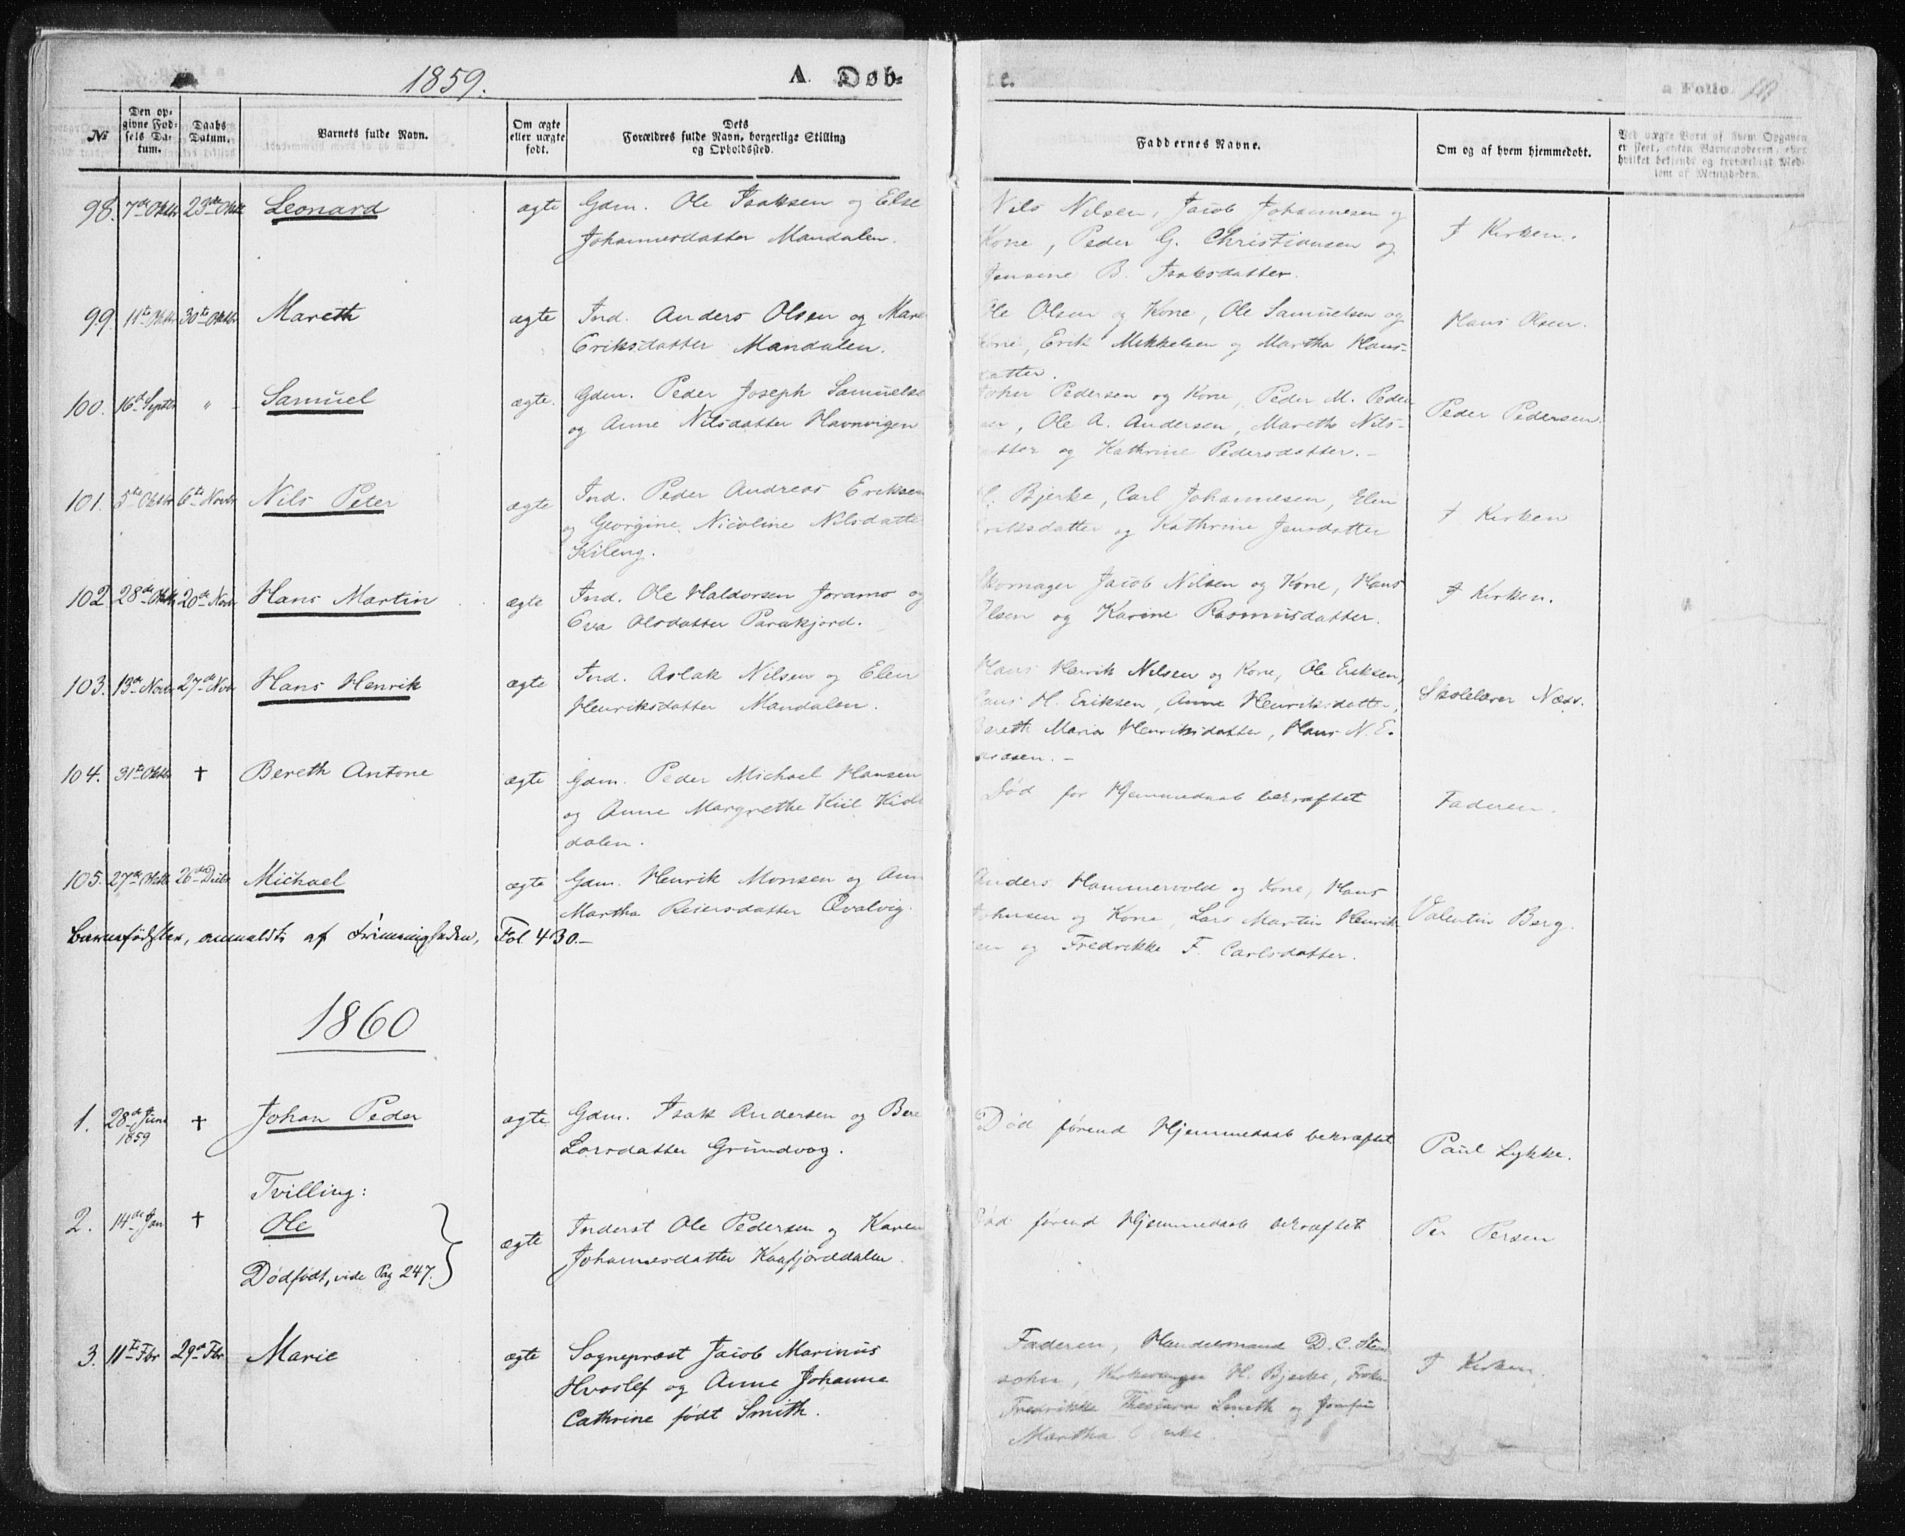 1859.
A. Døb-
te.
a Folio
No
Den op-
givne Fød-
sels Da-
tum.
Daabs
Datum.
Barnets fulde Navn.
Om ægte
eller uægte
født.
Dets
Forældres fulde Navn, borgerlige Stilling
og Opholdssted.
Faddernes Navne.
Om og af hvem hjemmedøbt.
Ved uægte Børn af hvem Opgaven
er skeet, enten Barnemoderen, eller
hvilket bekjendt og troværdigt Med-
lem af Menigheden.
98. 7de Oktbr 23de Oktbr Leonard ægte Gdm. Ole Isaksen og Else
Johannesdatter Mandalen.
Nils Nilsen, Jacob Johannesen og
Kone, Peder G. Christiansen og
Jensine B. Isaksdatter.
I Kirken.
99. 11te Oktbr 30te Oktbr Mareth ægte Ind. Anders Olsen og Mare
Eriksdatter Mandalen.
Ole Olsen og Kone, Ole Samuelsen og
Kone, Erik Mikkelsen og Martha Hans-
datter.
Hans Olsen.
100. 16de Septbr " Samuel ægte. Gdm. Peder Joseph Samuelse
og Anne Nilsdatter Havnvigen
Pedersen og Kone, Peder M. Peder
sen, Ole A. Andersen, Mareth Nils-
datter og Kathrine Pedersdatter. –
Peder Pedersen.
101. 5te Oktbr 6te Novbr Nils Peter ægte Ind. Peder Andreas Eriksen
og Georgine Nicoline Nilsdatte
Kileng.
H. Bjerke, Carl Johannesen, Elen
Eriksdatter og Kathrine Jensdatter
I Kirken
102. 28de Oktbr 20de Novbr Hans Martin ægte Ind. Ole Haldorsen Joramo og
Eva Olsdatter Parakjord.
Skomager Jacob Nilsen og Kone, Hans
Olsen og Karine Rasmusdatter.
I Kirken.
103. 13de Novbr 27de Novbr Hans Henrik ægte Ind. Aslak Nilsen og Elen
Henriksdatter Mandalen.
Hans Henrik Nilsen og Kone, Ole Eriksen,
Hans H. Eriksen, Anne Henriksdatter,
Bereth Maria Henriksdatter, Hans N. E.
Skolelærer Næss.
104. 31te Oktbr † Bereth Antone ægte Gdm. Peder Michael Hansen
og Anne Margrethe Kiil Kid
dalen.
Død før Hjemmedaab bekræftet
Faderen.
105. 27de Oktbr 26de Decbr Michael ægte Gdm. Henrik Monsen og Ann
Martha Reiersdatter Qvalvig.
Anders Hammervold og Kone, Hans
Johnsen og Kone, Lars Martin Henrik
sen og Fredrikke F. Carlsdatter.
Valentin Berg.
Barnefødsler, anmeldte af Frimenigheden, Fol 430 –
1860
1. 28de Juni
1859
† Johan Peder ægte Gdm. Isak Andersen og Bere
Larsdatter Grundvog.
Død førend Hjemmedaab bekræftet
Paul Lykke.
Tvilling:
2. 14de Jan † Ole
Dødfødt, vide Pag 247.
ægte Inderst Ole Pedersen og Karen
Johannesdatter Kaafjorddalen.
Død førend Hjemmedaab bekræftet
Per Persen
3. 11te Fbr 29de Fbr Marie ægte Sognepræst Jacob Marinus
Hvoslef og Anne Johanne
Cathrine født Smith.
Faderen, Handelsmand D. C. Sten
sohn, Kirkesanger H. Bjerke, Frøken
Fredrikke Smith og Jomfru
Martha
I Kirken.